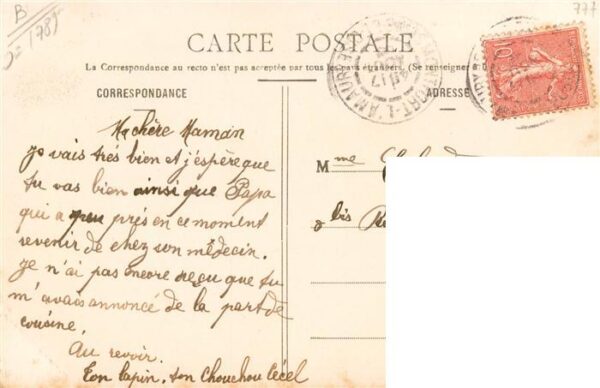 B
777
CARTE POSTALE
La Correspondance au recto n'est pas acceptée par tous les pays étrangers. (Se renseigner
CORRESPONDANCE
ADRESSE
MONTFORT-L'AMAURY
10
Ma chère Maman
Je vais très bien et j'espère que
tu vas bien ainsi que Papa
qui a peu près en ce moment
revenir de chez son médecin.
Je n'ai pas encore reçu que tu
m'avais annoncé de la part de
cousine.
Au revoir.
Ton lapin, ton chouchou Cécel
Mme
8 bis